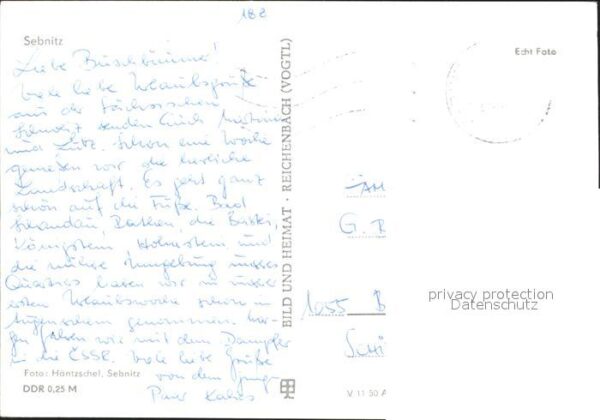 182
Sebnitz
Echt Foto
Liebe
viele liebe Urlaubsgrüße
aus der Sächsischen
Schweiz senden Euch
und Lutz. Schon eine Woche
genießen wir die herrliche
Landschaft. Es geht ganz
schön auf die Füße. Bad
Schandau, Rathen, die Bastei,
Königstein, Hohnstein und
die nähere Umgebung unseres
Quartiers haben wir in unserer
ersten Urlaubswoche schon in
Augenschein genommen.
fahren wir mit dem Dampfer
in die ČSSR. Viele liebe Grüße
von dem jungen
Foto: Hantzschel, Sebnitz
DDR 0,25 M
BILD UND HEIMAT · REICHENBACH (VOGTL)
G.
1055 B
privacy protection
Datenschutz
V 11 50 A